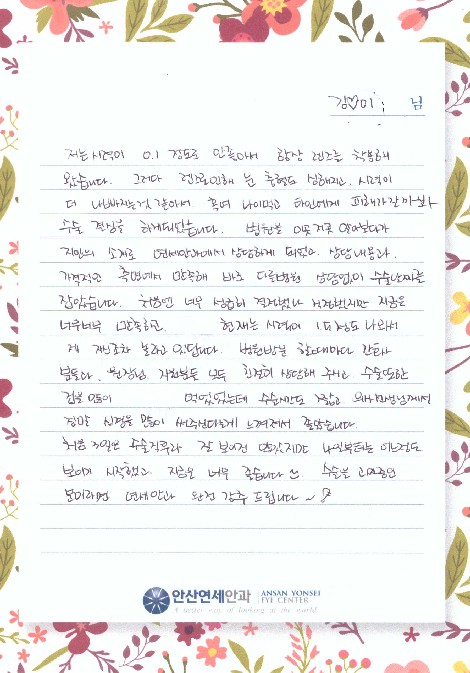 김♡미 님
저는 시력이 0.1 정도로 안좋아서 항상 렌즈를 착용해
왔습니다. 그러다 렌즈로인해 눈 충혈도 심해지고, 시력이
더 나빠지는것 같아서 혹여 나이먹고 타인에게 피해가 갈까싶어
수술 결심을 하게되었습니다. 병원을 이곳 저곳 알아보다가
지인의 소개로 연세안과에서 상담하게 되었고, 상담내용과
가격적인 측면에서 만족해 바로 다른병원 상담없이 수술날짜를
잡았습니다. 처음엔 너무 성급히 결정했나 걱정했지만 지금은
너무너무 만족하고, 현재는 시력이 1이상도 나와서
제 자신조차 놀라고 있답니다. 병원방문 할때마다 간호사
분들과, 원장님, 직원분들 모두 친절히 상담해 주시고 수술또한
겁을 많이 먹었었는데 수술시간도 짧고 의사선생님께서
정말 신경을 많이 써주신다는게 느껴져서 좋았습니다.
처음 3일은 수술직후라 잘 보이진 않았지만 4일부터는 어느정도
보이기 시작했고, 지금은 너무 좋습니다 수술을 고민중인
분이라면 연세안과 완전 강추 드립니다~
안산연세안과 ANSAN YONSEI
EYE CENTER
A better way of looking at the world